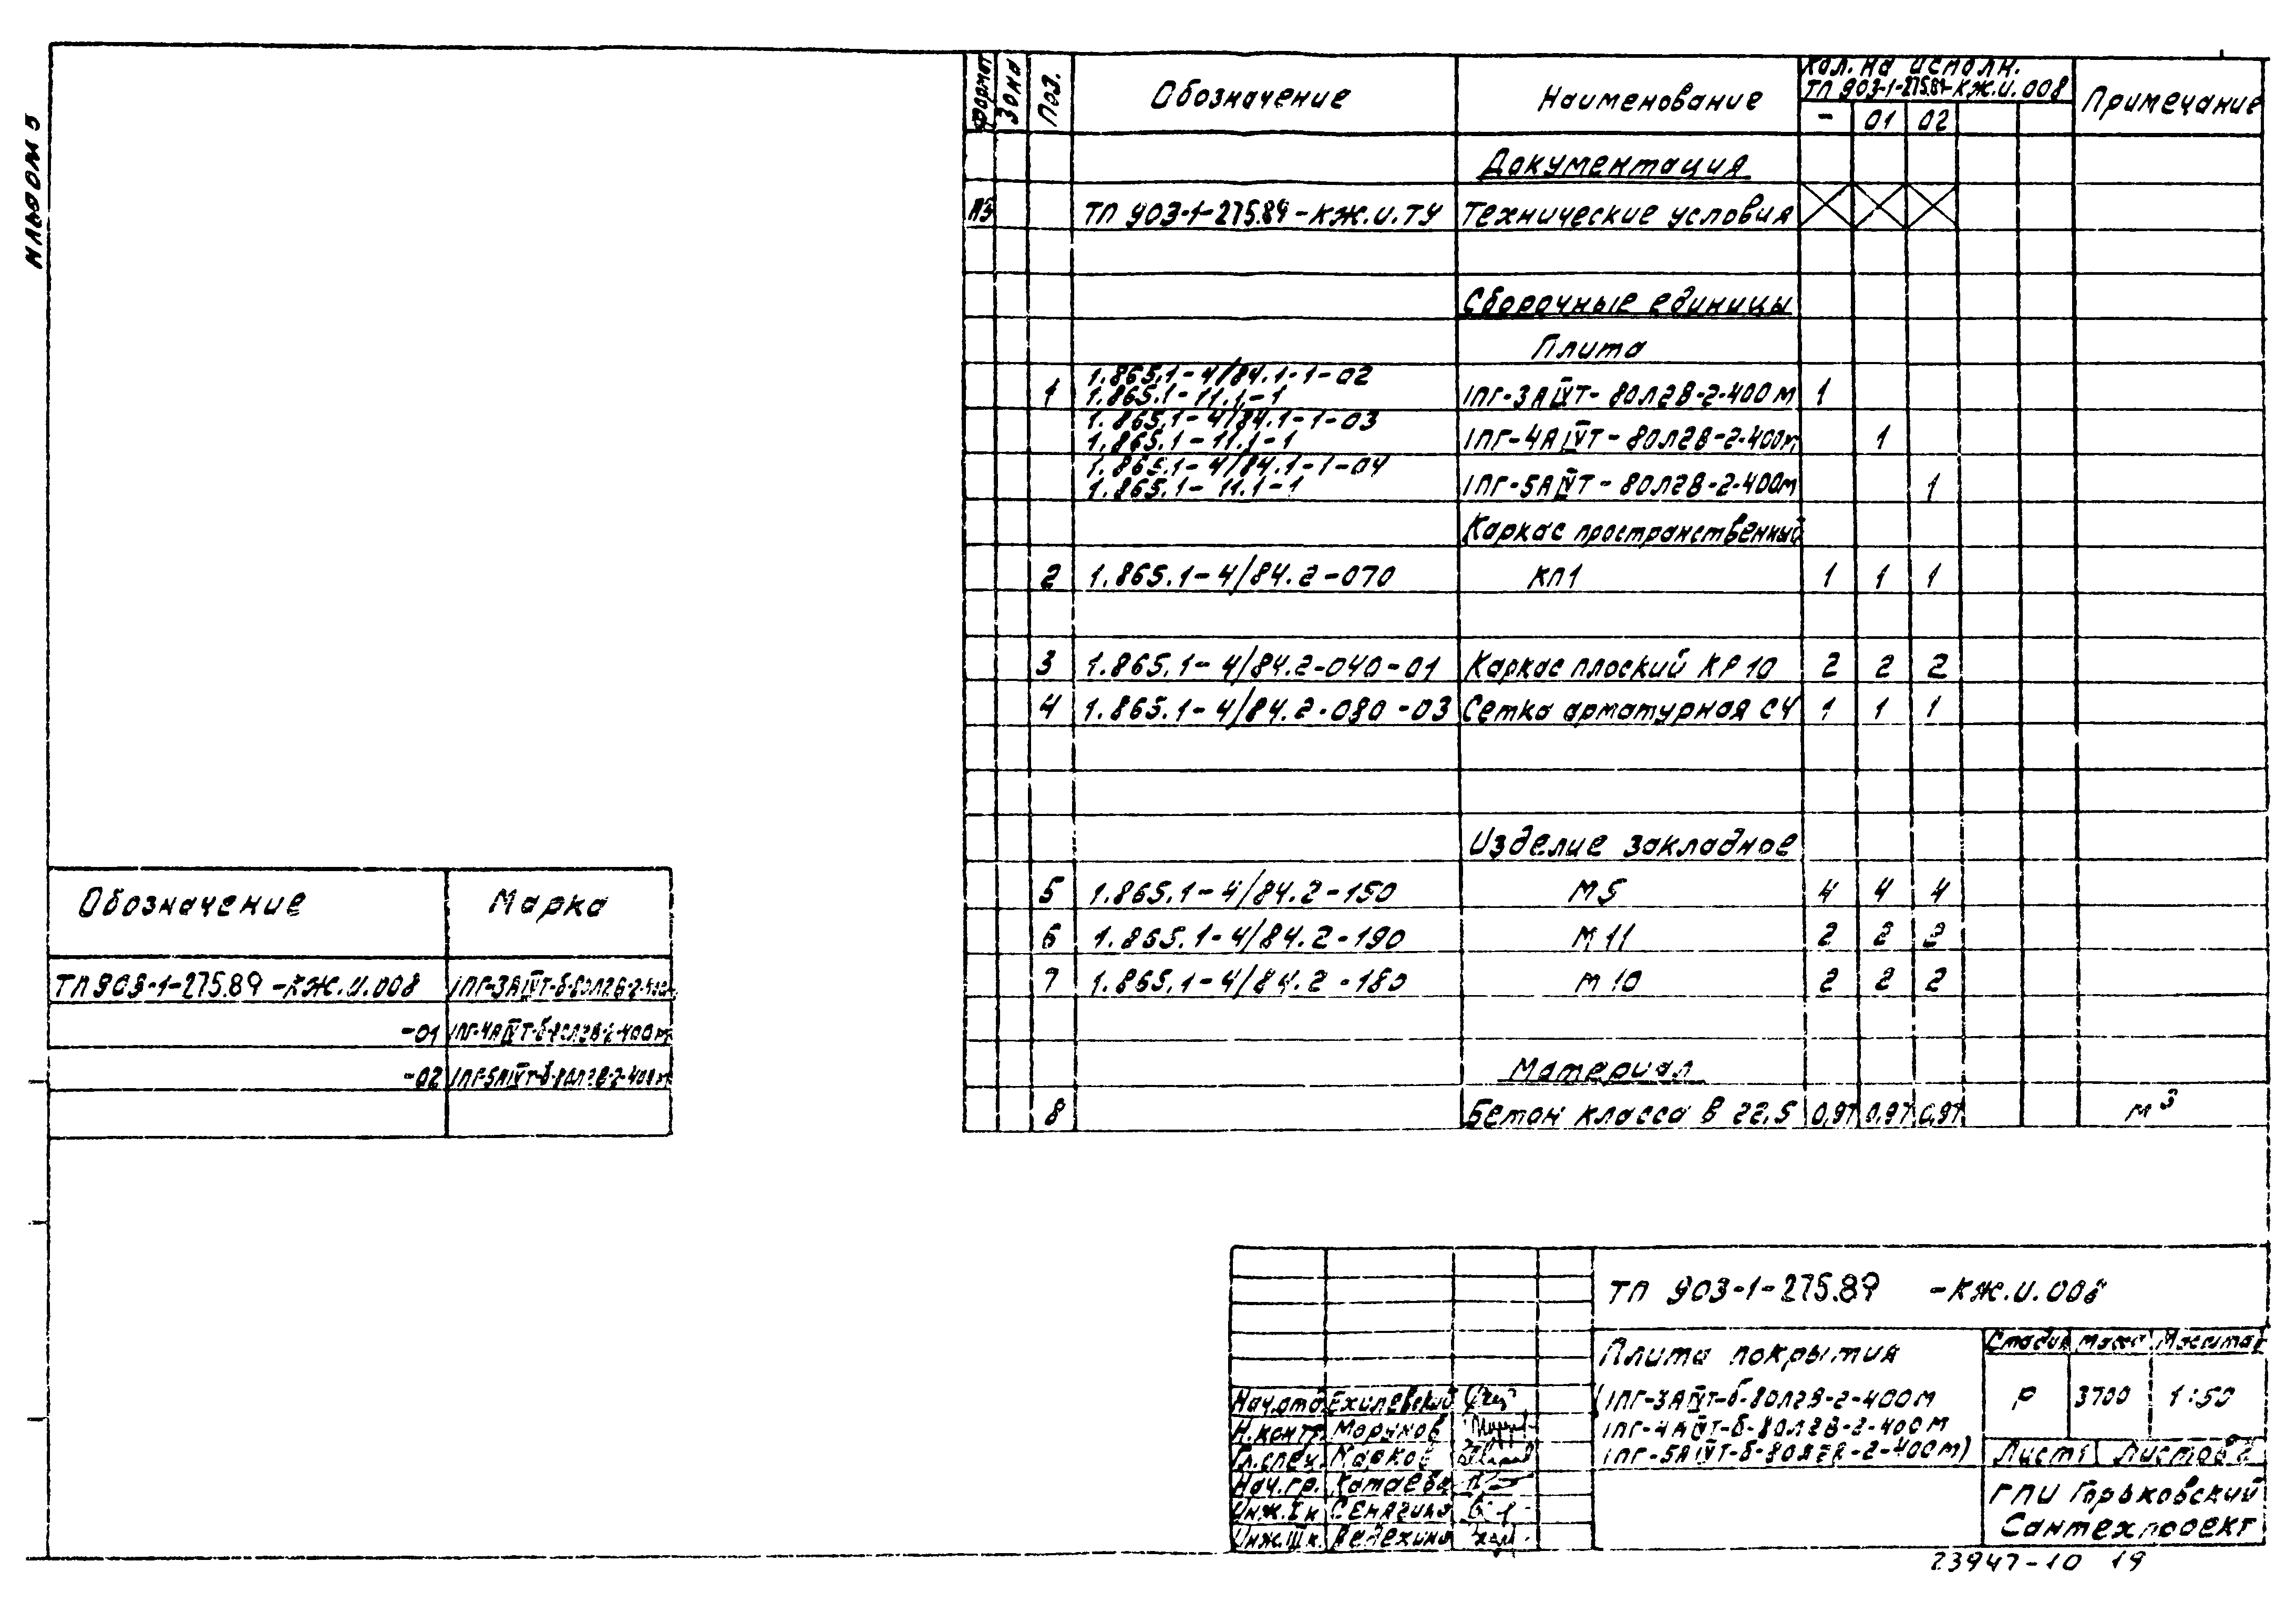 Альбом 5
Формат Зона Поз. Обозначение Наименование Кол. на исполн. Примечание
ТП 903-1-275.89-КЖ.И.008
- 01 02
Документация
А3 ТП 903-1-275.89-КЖ.И.ТУ Технические условия
Сборочные единицы
Плита
1.865.1-4/84.1-1-02
1 1.865.1-11.1-1 1ПГ-3АIVТ-80Л2В-2-400м 1
1.865.1-4/84.1-1-03
1.865.1-11.1-1 1ПГ-4АIVТ-80Л2В-2-400м 1
1.865.1-4/84.1-1-04
1.865.1-11.1-1 1ПГ-5АIVТ-80Л2В-2-400м 1
Каркас пространственный
2 1.865.1-4/84.2-070 КП1 1 1 1
3 1.865.1-4/84.2-040-01 Каркас плоский КР10 2 2 2
4 1.865.1-4/84.2-080-03 Сетка арматурная С4 1 1 1
Изделие закладное
5 1.865.1-4/84.2-150 М5 4 4 4
6 1.865.1-4/84.2-190 М11 2 2 2
7 1.865.1-4/84.2-180 М10 2 2 2
Материал
8 Бетон класса В 22,5 0,97 0,97 0,97 м³
Обозначение Марка
ТП 903-1-275.89-КЖ.И.008 1ПГ-3АIVТ-б-80Л2В-2-400м
-01 1ПГ-4АIVТ-б-80Л2В-2-400м
-02 1ПГ-5АIVТ-б-80Л2В-2-400м
ТП 903-1-275.89 -КЖ.И.008
Плита покрытия
(1ПГ-3АIVТ-б-80Л2В-2-400м
1ПГ-4АIVТ-б-80Л2В-2-400м
1ПГ-5АIVТ-б-80Л2В-2-400м)
Стадия Масса Масштаб
Р 3700 1:50
Лист 1 Листов 2
ГПИ Горьковский
Сантехпроект
Нач.отд. Ехилевский
Н.контр. Морунов
Гл.спец. Марков
Нач.гр. Катаева
Инж.I к. Сенягина
Инж.III к. Ведехина
23947-10 19